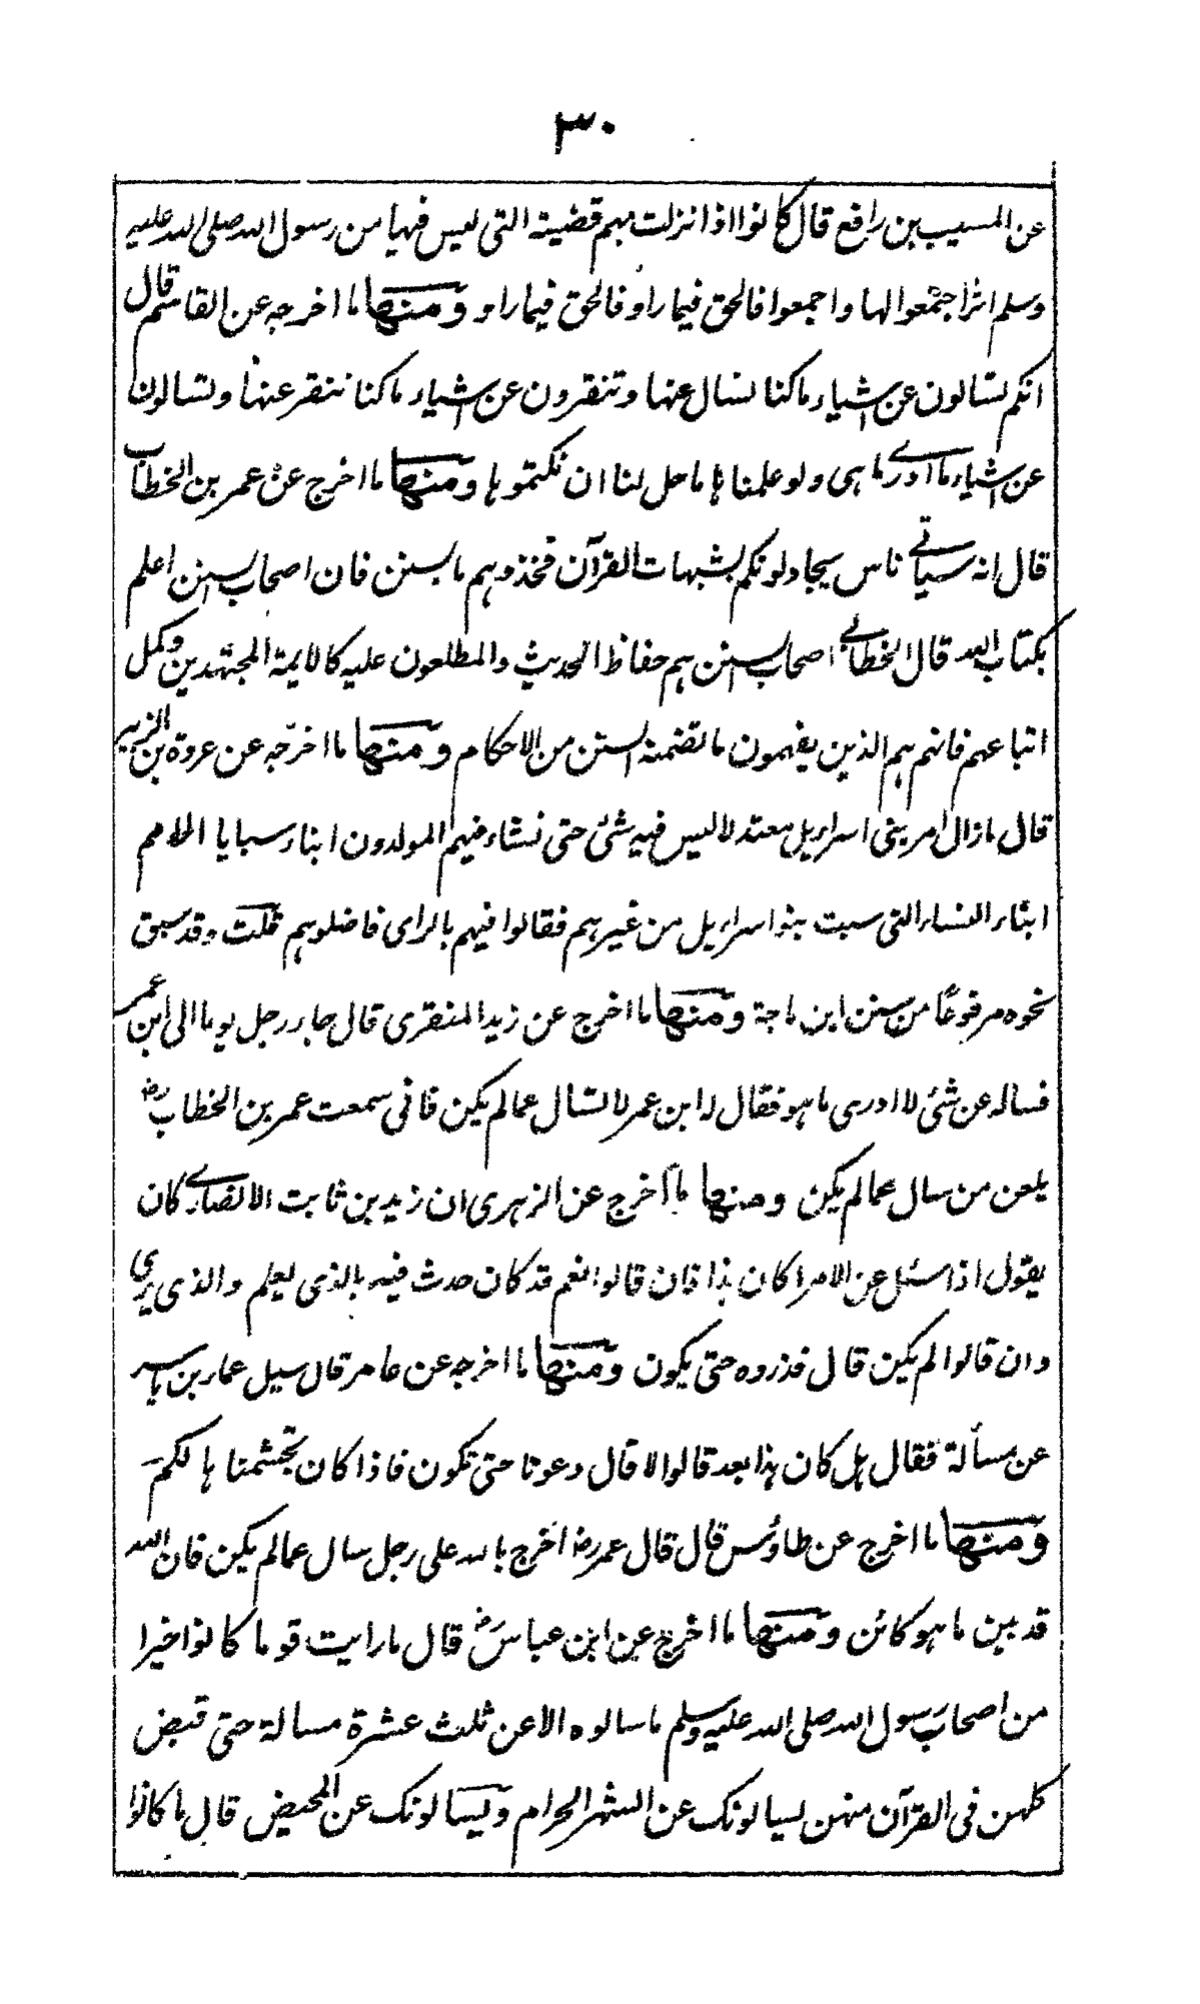 ٣٠
عن المسيب بن رافع قال كانوا اذا نزلت بهم قضية التى ليس فيها من رسول الله صلى الله عليه
وسلم اثرا جتمعوا لها واجمعوا فالحق فيما راو فالحق فيما راو ومنها ما اخرجه عن القاسم قال
انكم لتسالون عن اشياء ما كنا نسال عنها وتنقرون عن اشياء ما كنا ننقر عنها وتسالون
عن اشياء ما ادرے ما هى ولو علمناها ما حل لنا ان نكتموها ومنها ما اخرج عن عمر بن الخطاب
قال انه سياتے ناس يجادلونكم بشبهات القرآن فخذوهم بالسنن فان اصحاب السنن اعلم
بكتاب الله قال الخطابے اصحاب السنن هم حفاظ الحديث والمطلعون عليه كالايمة المجتهدين وكمل
اتباعهم فانهم هم الذين يفهمون ما تضمنه السنن من الاحكام ومنها ما اخرجه عن عروة بن الزبير
قال ما زال امر بنى اسرايل معتدلا ليس فيه شئ حتى نشاء فيهم المولدون ابناء سبايا الامم
ابناء النساء التى سبت بنو اسرايل من غيرهم فقالوا فيهم بالراى فاضلوهم قلت وقد سبق
نحوه مرفوعًا من سنن ابن ماجة ومنها ما اخرج عن زيد المنقرى قال جاء رجل يوما الى ابن عمر
فساله عن شئ لا ادرى ما هو فقال له ابن عمر لا تسال عما لم يكن فانى سمعت عمر بن الخطاب رضـ
يلعن من سال عما لم يكن ومنها ما اخرج عن الزهرى ان زيد بن ثابت الانصارے كان
يقول اذا سئل عن الامر اكان هذا فان قالوا نعم قد كان حدث فيه بالذى يعلم والذى يرى
وان قالوا لم يكن قال فذروه حتى يكون ومنها ما اخرجه عن عامر قال سيل عمار بن ياسر
عن مسألة فقال هل كان هذا بعد قالوا لا قال دعونا حتى تكون فاذا كان تجشمناها لكم
ومنها ما اخرج عن طاؤس قال قال عمر رضـ احرج بالله على رجل سال عما لم يكن فان الله
قد بين ما هو كائن ومنها ما اخرج عن ابن عباس رضـ قال ما رايت قوما كانوا خيرا
من اصحاب رسول الله صلى الله عليه وسلم ما سالوه الا عن ثلث عشرة مسالة حتى قبض
كلهن فى القرآن منهن يسيالونك عن الشهر الحرام ويسالونك عن المحيض قال ما كانوا